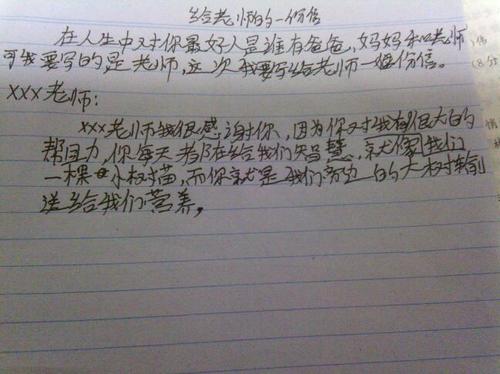 给老师的一份信
在人生中对你最好人是谁有爸爸,妈妈和老师
可我要写的是老师,这次我要写给老师一份信。
XXX老师:
XXX老师我很感谢你,因为你对我有很大的
帮助,你每天都在给我们智慧,就像我们
一棵小树苗,而你就是我们旁边的大树输
送给我们营养,